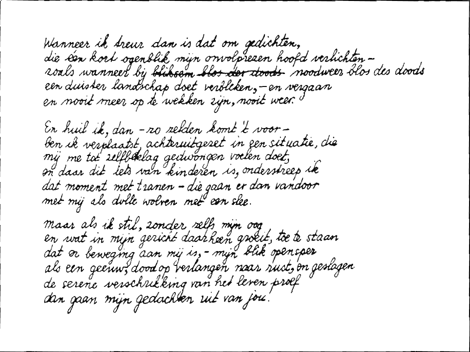 Wanneer ik treur dan is dat om gedichten,
die één kort ogenblik mijn onvolprezen hoofd verlichten –
zoals wanneer bij bliksem blos der doods noodweer blos des doods
een duister landschap doet verbleken, – en vergaan
en nooit meer op te wekken zijn, nooit weer.
En huil ik, dan – zo zelden komt 't voor –
ben ik verplaatst, achteruitgezet in een situatie, die
mij me tot zelfbeklag gedwongen voelen doet,
en daar dit iets van kinderen is, onderstreep ik
dat moment met tranen – die gaan er dan vandoor
met mij als dolle wolven met een slee.
Maar als ik stil, zonder zelfs mijn oog
en wat in mijn gezicht daarheen groeit, toe te staan
dat er beweging aan mij is, – mijn blik opensper
als een geeuw, dood op verlangen naar rust, en geslagen
de serene verschrikking van het leven proef
dan gaan mijn gedachten uit van jou.